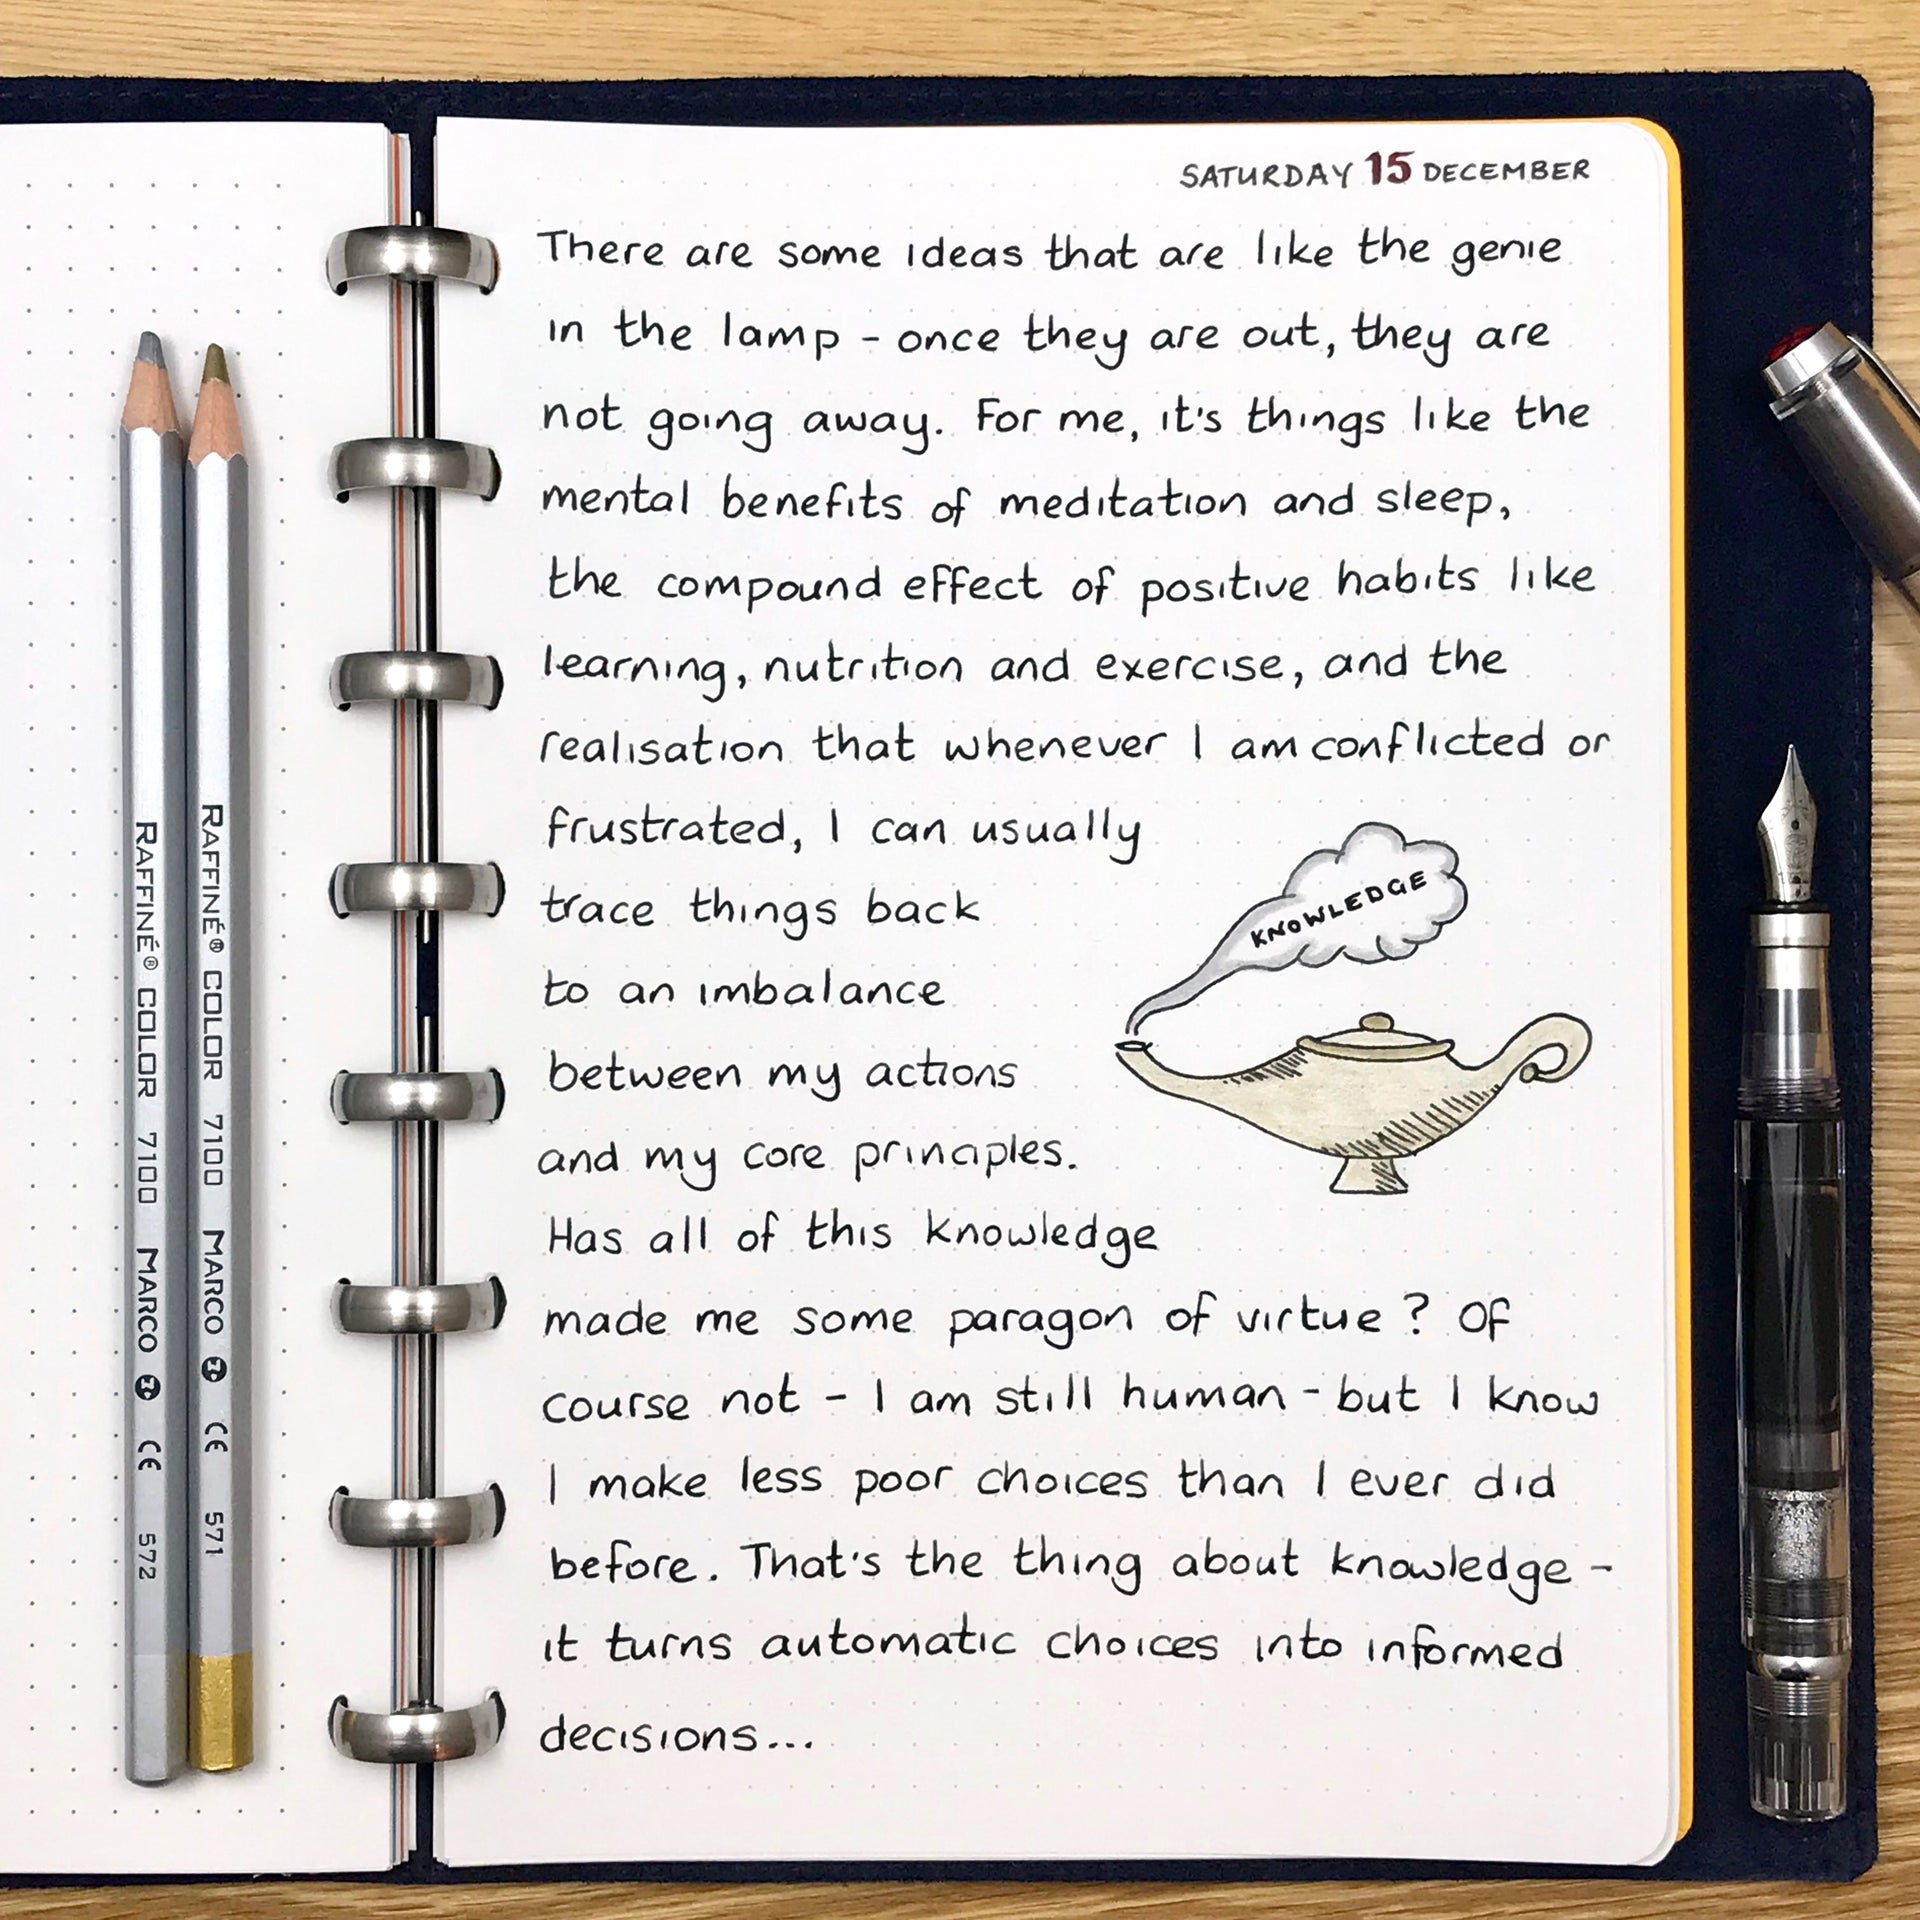 SATURDAY 15 DECEMBER
There are some ideas that are like the genie
in the lamp - once they are out, they are
not going away. For me, it's things like the
mental benefits of meditation and sleep,
the compound effect of positive habits like
learning, nutrition and exercise, and the
realisation that whenever I am conflicted or
frustrated, I can usually
trace things back
to an imbalance
between my actions
and my core principles.
Has all of this knowledge
made me some paragon of virtue? Of
course not - I am still human - but I know
I make less poor choices than I ever did
before. That's the thing about knowledge -
it turns automatic choices into informed
decisions...
KNOWLEDGE
RAFFINÉ® COLOR 7100 MARCO CE 572
RAFFINÉ® COLOR 7100 MARCO CE 571